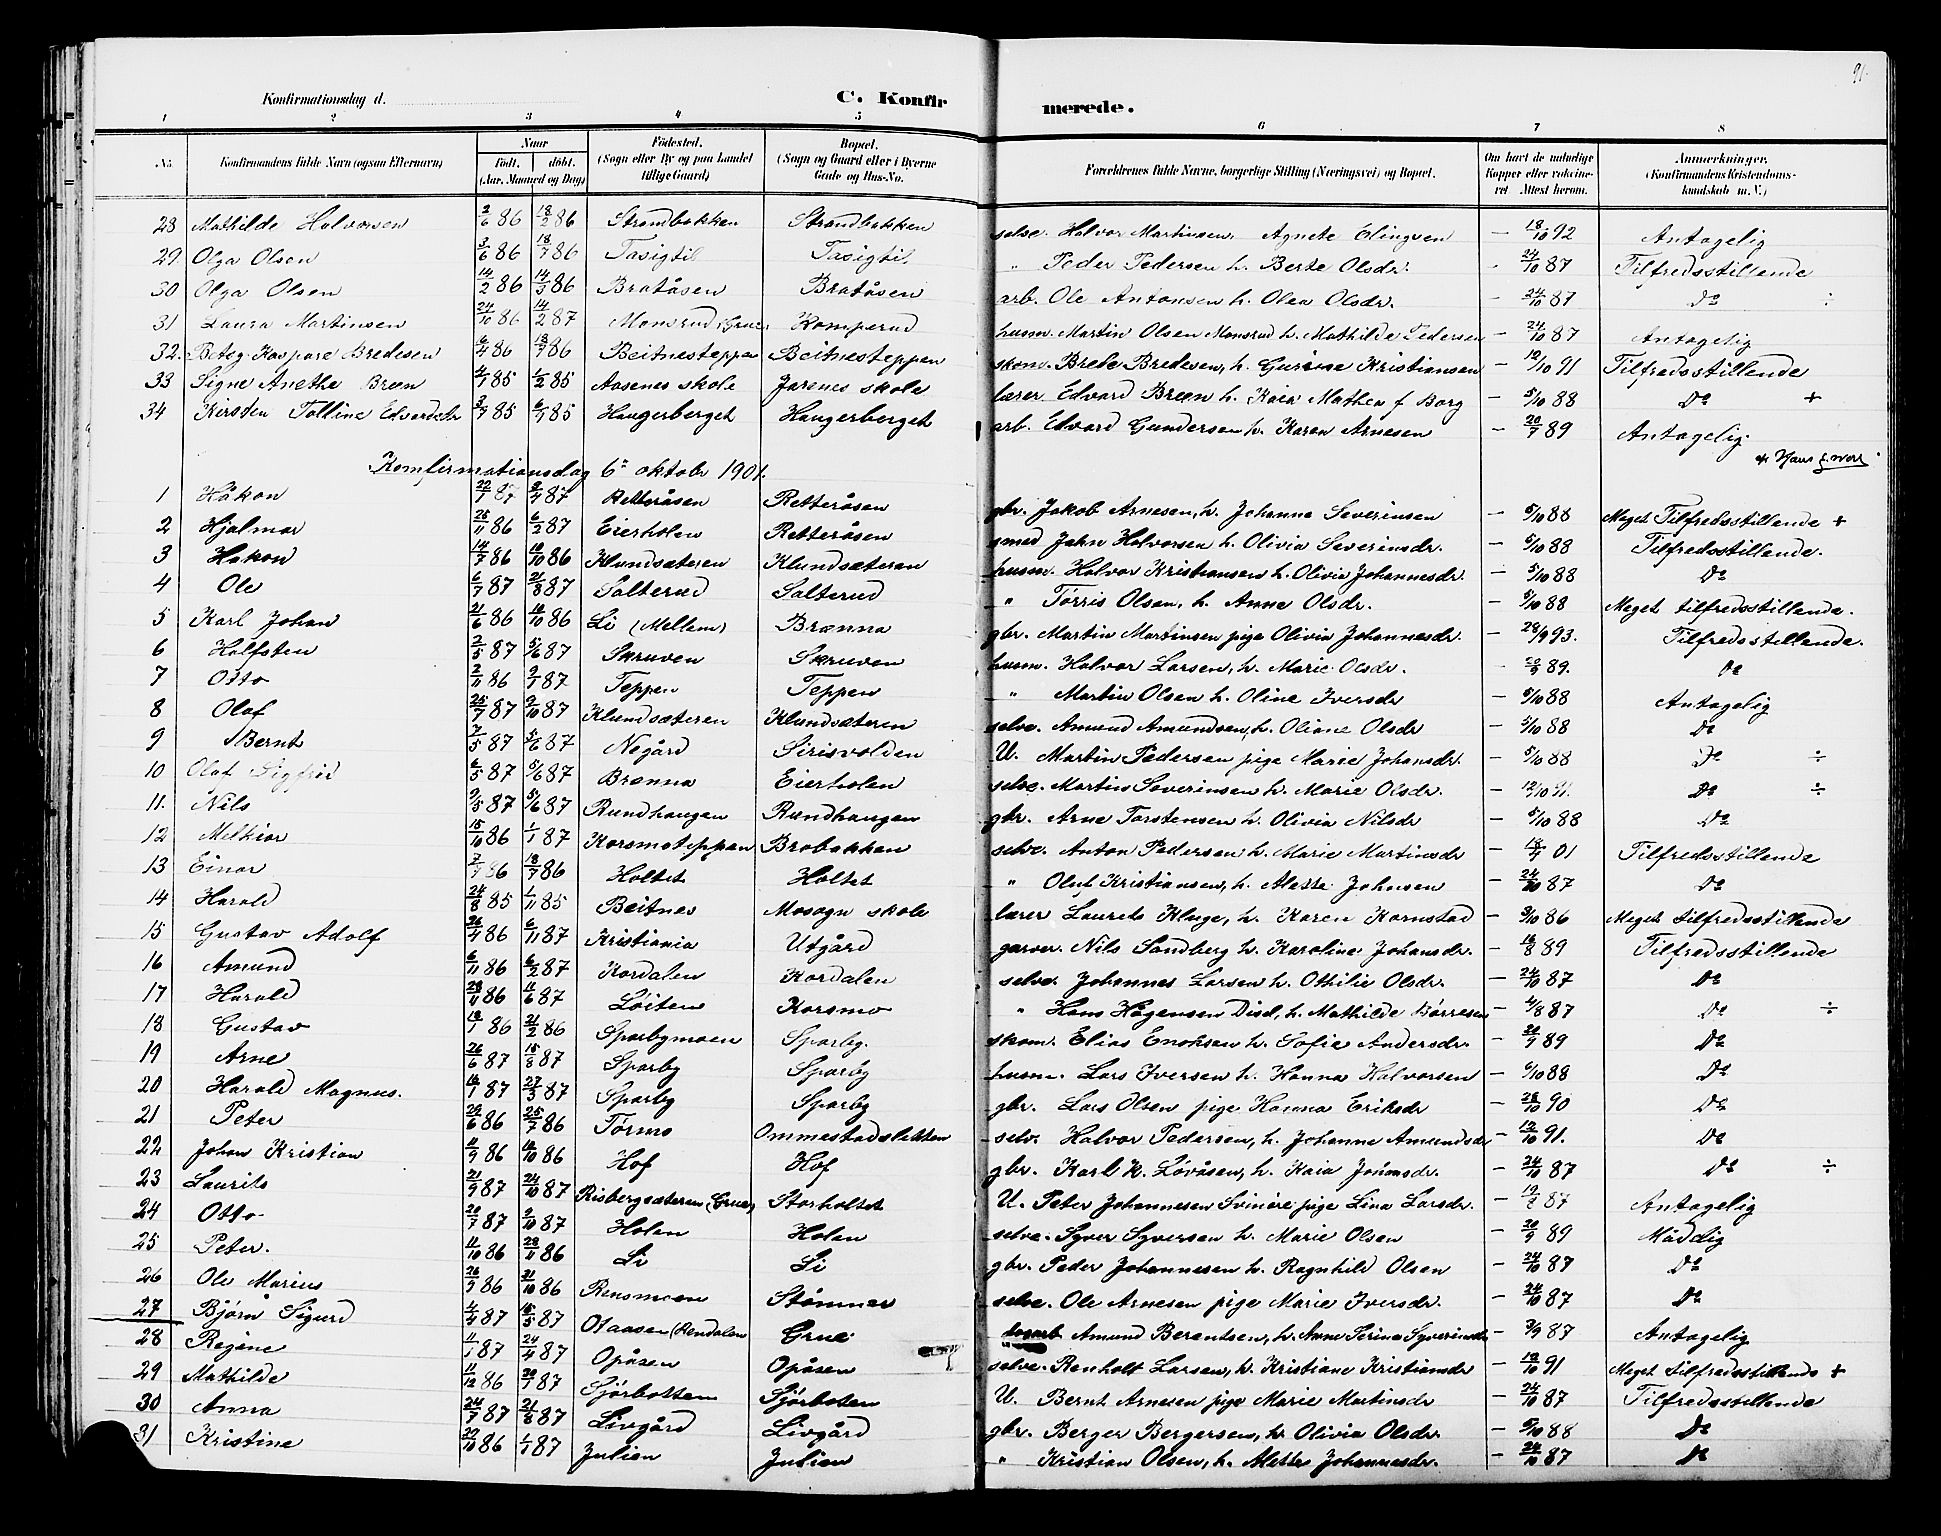 91.
Konfirmationsdag d. C. Konfirmerede.
1 2 3 4 5 6 7 8
No. Konfirmandens fulde Navn (ogsaa Efternavn) Naar født, døbt. (Aar, Maaned og Dag) Fødested. (Sogn eller By og paa Landet tillige Gaard) Bopæl. (Sogn og Gaard eller i Byerne Gade og Hus-No. Forældrenes fulde Navne, borgerlige Stilling (Næringsvei) og Bopæl. Om havt de naturlige Kopper eller vakcineret Attest herom. Anmærkninger. (Konfirmandens Kristendomskundskab m. V.)
28 Mathilde Halvorsen 2/6 86 18/2 86 Strandbakken Strandbakken selve. Halvor Martinsen, Agnete Elingsen — 18/10 92 Antagelig
29. Olga Olsen 3/6 86 18/7 86 Tasigtil Tasigtil " Peder Pedersen h. Berte Olsdr. - 24/10 87 Tilfredsstillende
30 Olga Olsen 14/2 86 14/3 86 Bråtåsen Bråtåsen arb. Ole Antonsen h. Olea Olsdr. - 24/10 87 Do ÷
31 Laura Martinsen 24/10 86 14/2 87 Monsrud (Grue) Komperud husm. Martin Olsen Monsrud h. Mathilde Pedersen — 24/10 87 Antagelig
32. Betzy Kaspare Bredesen 6/4 86 18/7 86 Beitnesteppen Beitnesteppen skom. Brede Bredesen, h. Gurine Kristiansen — 12/10 91 Tilfredsstillende
33 Signe Anethe Bræn 4/1 85 1/2 85 Aasenes skole Jarenes skole lærer Edvard Bræn h. Kaia Mathea f Borg — 5/10 88 Do +
34 Kirsten Tolline Edvardsdr 3/7 85 6/1 85 Haugerberget Haugerberget arb. Edvard Gundersen h. Karen Arnesen — 20/7 89 Antagelig.
Konfirmationsdag 6te oktobr 1901.
1 Håkon 22/1 87 3/4 87 Retteråsen Retteråsen gbr. Jakob Arnesen, h. Johanne Severinsen — 5/10 88 Meget Tilfredsstillende +
2 Hjalmar 25/11 86 6/2 87 Eierholen Retteråsen smed John Halvorsen h. Olivia Severinsdr. — 5/10 88 Tilfredsstillende.
3 Håkon 14/7 86 10/10 86 Klundsæteren Klundsæteren husm. Halvor Kristiansen h. Olivia Johannesdr. — 5/10 88 Do
4 Ole 6/7 87 21/8 87 Salterud Salterud " Tørris Olsen, h. Anne Olsdr. — 5/10 88 Meget tilfredsstillende.
5 Karl Johan 21/6 86 10/10 86 Li (Mellem) Brænna gbr. Martin Martinsen pige Olivia Johannesdr. — 28/9 93. Tilfredsstillende.
6 Halfsten 2/5 87 5/6 87 Skruven Skruven husm. Halvor Larsen, h. Marie Olsdr. — 20/9 89. Do
7 Otto 2/11 86 9/1 87 Teppen Teppen " Martin Olsen h. Oline Iversdr — 5/10 88 Antagelig
8 Olaf 25/7 87 9/10 87 Klundsæteren Klundsæteren selve. Amund Amundsen, h. Oliane Olsdr — 5/10 88 Do
9 Bernt 7/5 87 5/6 87 Negård Sirisvolden U. Martin Pedersen pige Marie Johansdr. — 5/10 88 Do ÷
10 Olaf Sigfrid 6/5 87 5/6 87 Brænna Eierholen selve. Martin Severinsen h. Marie Olsdr. — 12/10 91. Do ÷
11. Nils 9/5 87 5/6 87 Rundhaugen Rundhaugen gbr. Arne Torstensen h. Olivia Nilsdr — 5/10 88 Do
12 Melkior 15/10 86 1/1 87 Korsmoteppen Brobakken selve. Anton Pedersen h. Marie Martinsdr — 18/4 01 Tilfredsstillende
13 Einar 2/7 86 18/7 86 Holtet Holtet " Oluf Kristiansen, h. Alette Johnsen — 24/10 87 Do
14 Harald 24/8 85 1/11 85 Beitnes Mosogn skole lærer Laurets Kluge, h. Karen Kornstad — 3/10 86 Meget tilfredsstillende
15 Gustav Adolf 26/4 86 6/11 87 Kristiania Utgård garver. Nils Sandberg h. Karoline Johansdr. — 16/8 89 Tilfredsstillende
16 Amund 6/11 86 6/2 87 Kordalen Kordalen selve. Johannes Larsen h. Othilie Olsdr. — 24/10 87 Do
17 Harald 28/11 86 11/6 87 Løiten Korsmo " Hans Hågensen Disel, h. Mathilde Børresen — 4/8 87 Do ÷
18 Gustav 18/1 86 21/2 86 Sparbymoen Sparby. skom. Elias Enoksen h. Sofie Andersdr. — 20/9 89 Do
19 Arne 26/6 87 15/8 87 Sparby Sparby husm. Lars Iversen h. Hanna Halvorsen — 5/10 88 Do
20 Harald Magnus. 16/1 87 27/3 87 Sparby Sparby gbr. Lars Olsen pige Hanna Eriksdr — 28/10 90 Do
21 Peter 29/6 86 25/7 86 Tørmo Ommestadsletten selv. Halvor Pedersen, h. Johanne Amundsdr — 12/10 91. Do
22 Johan Kristian 11/9 86 10/10 86 Hof Hof gbr. Karl K. Løvåsen, h. Kaia Johansdr. — 24/10 87 Do ÷
23 Laurits 21/9 87 24/10 87 Risbergsæteren (Grue) Storholtet U. Peter Johannesen Svinåre pige Lina Larsdr. — 87 Antagelig
24 Otto 20/7 87 9/10 87 Holen Holen selve. Syver Syversen h. Marie Olsen — 20/9 89 Måddig
25 Peter. 11/10 86 28/11 86 Li Li gbr. Peder Johannesen h. Ragnhild Olsen — 24/10 87 Do
26 Ole Marius 26/9 86 31/10 86 Rensmoen Stømner selve. Ole Arnesen pige Marie Iversdr. — 24/10 87 Do
27 Bjørn Sigurd 4/4 87 15/5 87 Osaasen (Rendalen Grue Amund Berentsen, h. Anne Serine Syverinsdr — 3/9 87 Antagelig
28 Regine 11/1 87 24/4 87 Opåsen Opåsen selve. Renholt Larsen, h. Kristiane Kristiansdr — 12/10 91 Meget tilfredsstillende +
29 Mathilde 11/12 86 30/1 87 Sjørbotten Sjørboten U. Bernt Arnesen pige Marie Martinsdr — 24/10 87 Tilfredsstillende
30 Anna 24/7 87 21/8 87 Livgård Livgård gbr. Berger Bergersen, h. Olivia Olsdr. — 5/10 88 Do
31 Kristine 29/10 86 1/1 87 Julien Julien " Kristian Olsen, h. Alette Johannesdr. — 24/10 87 Do